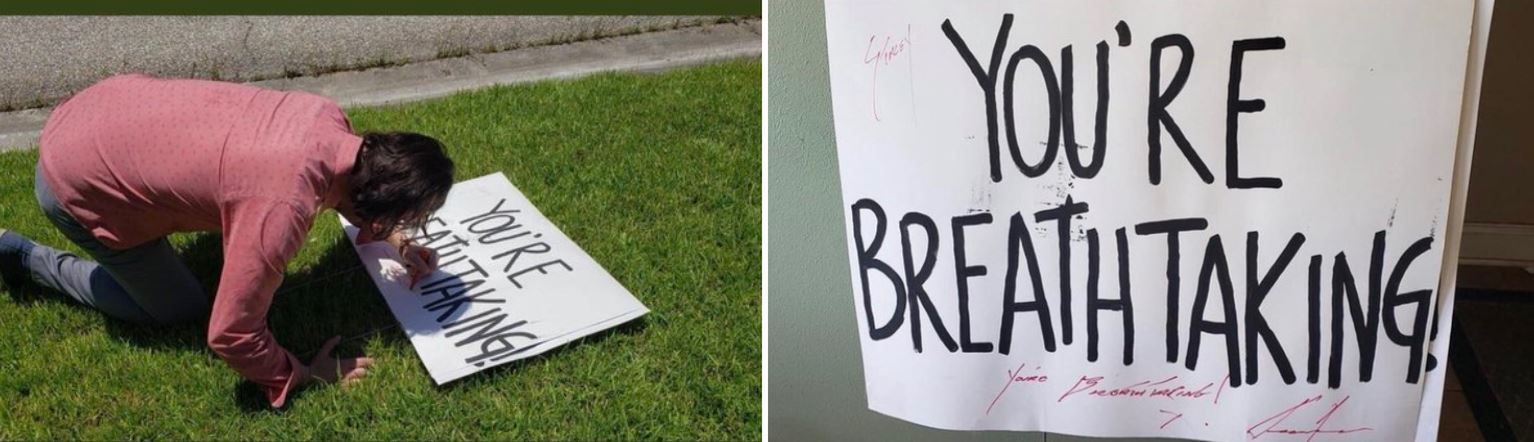 YOU'RE
BREATHTAKING!
YOU'RE
BREATHTAKING!
You're Breathtaking!